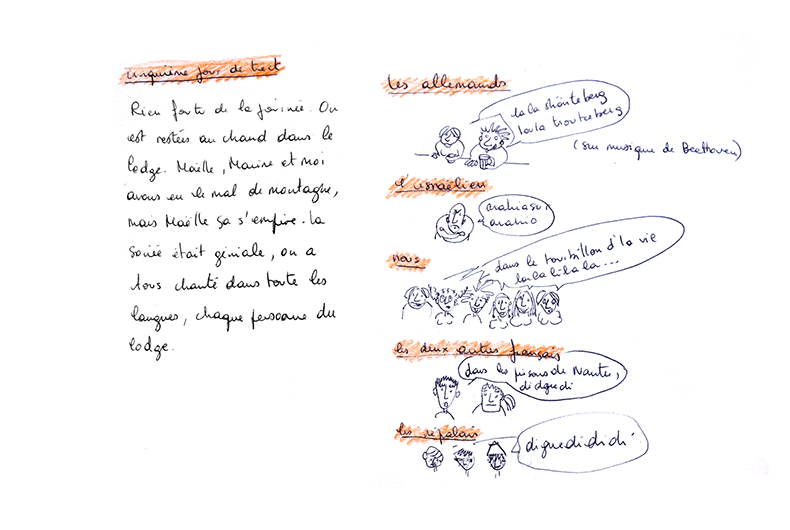 cinquième jour de treck
Rien foutu de la journée. On
est restées au chaud dans le
lodge. Maëlle, Marine et moi
avons eu le mal de montagne,
mais Maëlle ça s'empire. La
soirée était géniale, on a
tous chanté dans toute les
langues, chaque personne du
lodge.
les allemands
lala shönteberg
lala trouteberg
(sur musique de Beethoven)
l'israëlien
nous
dans le tourbillon d'la vie
lalalilala...
les deux autres français
dans les prisons de Nantes,
didguedi
les népalais
diguedididi